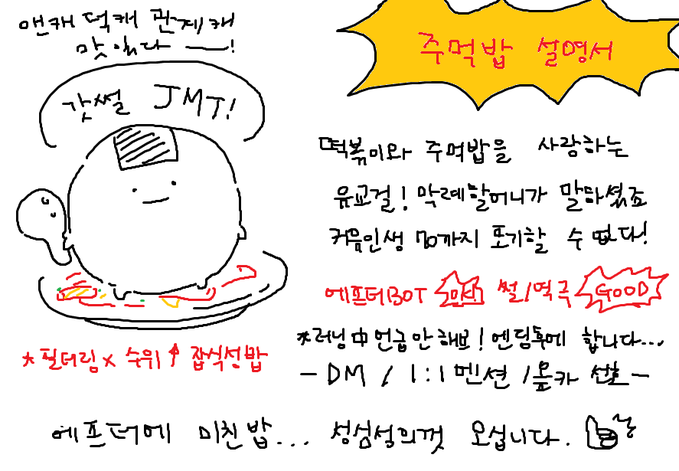 앤캐 덕캐 관계캐
맛있다 ——!
갓썰 JMT!
*필터링 x 수위↑ 잡식성밥
주먹밥 설명서
떡볶이와 주먹밥을 사랑하는
유교걸! 막례할머니가 말하셨죠
커뮤인생 70까지 포기할 수 없다!
에프터BOT 썰/역극 GOOD
*러닝中 언급 안해브! 엔딩후에 합니다...
- DM / 1:1 멘션 / 선호 -
에프터에 미친밥... 성심성의껏 오십니다.